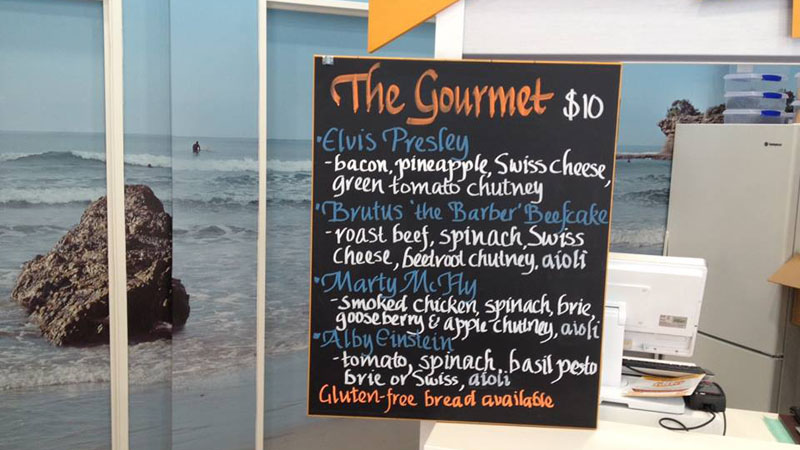 The Gourmet $10
·Elvis Presley
-bacon, pineapple, Swiss cheese,
green tomato chutney
·Brutus 'the Barber' Beefcake
-roast beef, spinach, Swiss
cheese, beetroot chutney, aioli
·Marty McFly
-smoked chicken, spinach, brie,
gooseberry & apple chutney, aioli
·Alby Einstein
-tomato, spinach, basil pesto
brie or Swiss, aioli
Gluten-free bread available